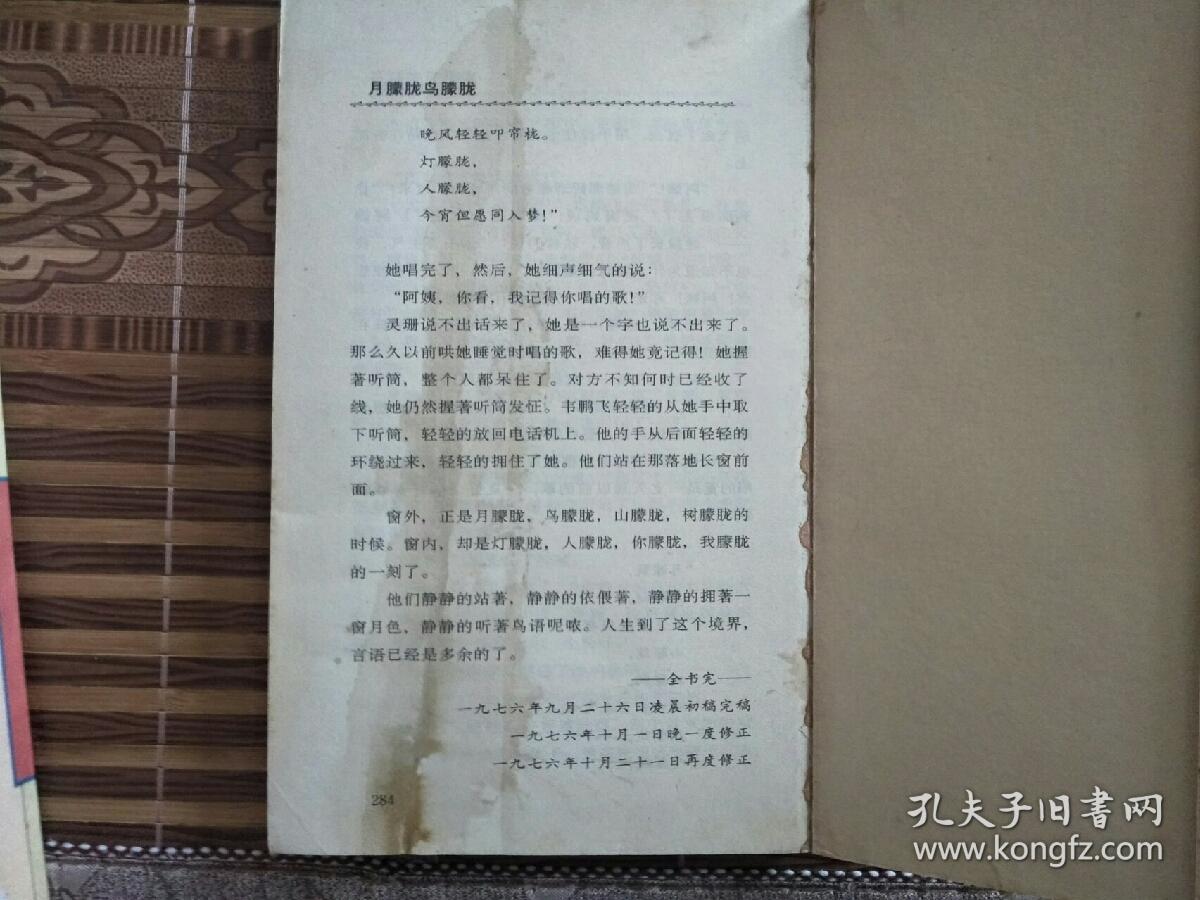 月朦胧鸟朦胧
晚风轻轻叩帘栊。
灯朦胧，
人朦胧，
今宵但愿同入梦！”
她唱完了，然后，她细声细气的说：
“阿姨，你看，我记得你唱的歌！”
灵珊说不出话来了，她是一个字也说不出来了。
那么久以前哄她睡觉时唱的歌，难得她竟记得！她握
著听筒，整个人都呆住了。对方不知何时已经收了
线，她仍然握著听筒发怔。韦鹏飞轻轻的从她手中取
下听筒，轻轻的放回电话机上。他的手从后面轻轻的
环绕过来，轻轻的拥住了她。他们站在那落地长窗前
面。
窗外，正是月朦胧，鸟朦胧，山朦胧，树朦胧的
时候。窗内，却是灯朦胧，人朦胧，你朦胧，我朦胧
的一刻了。
他们静静的站著，静静的依偎著，静静的拥著一
窗月色，静静的听著鸟语呢哝。人生到了这个境界，
言语已经是多余的了。
——全书完——
一九七六年九月二十六日凌晨初稿完稿
一九七六年十月一日晚一度修正
一九七六年十月二十一日再度修正
284
孔夫子旧书网
www.kongfz.com